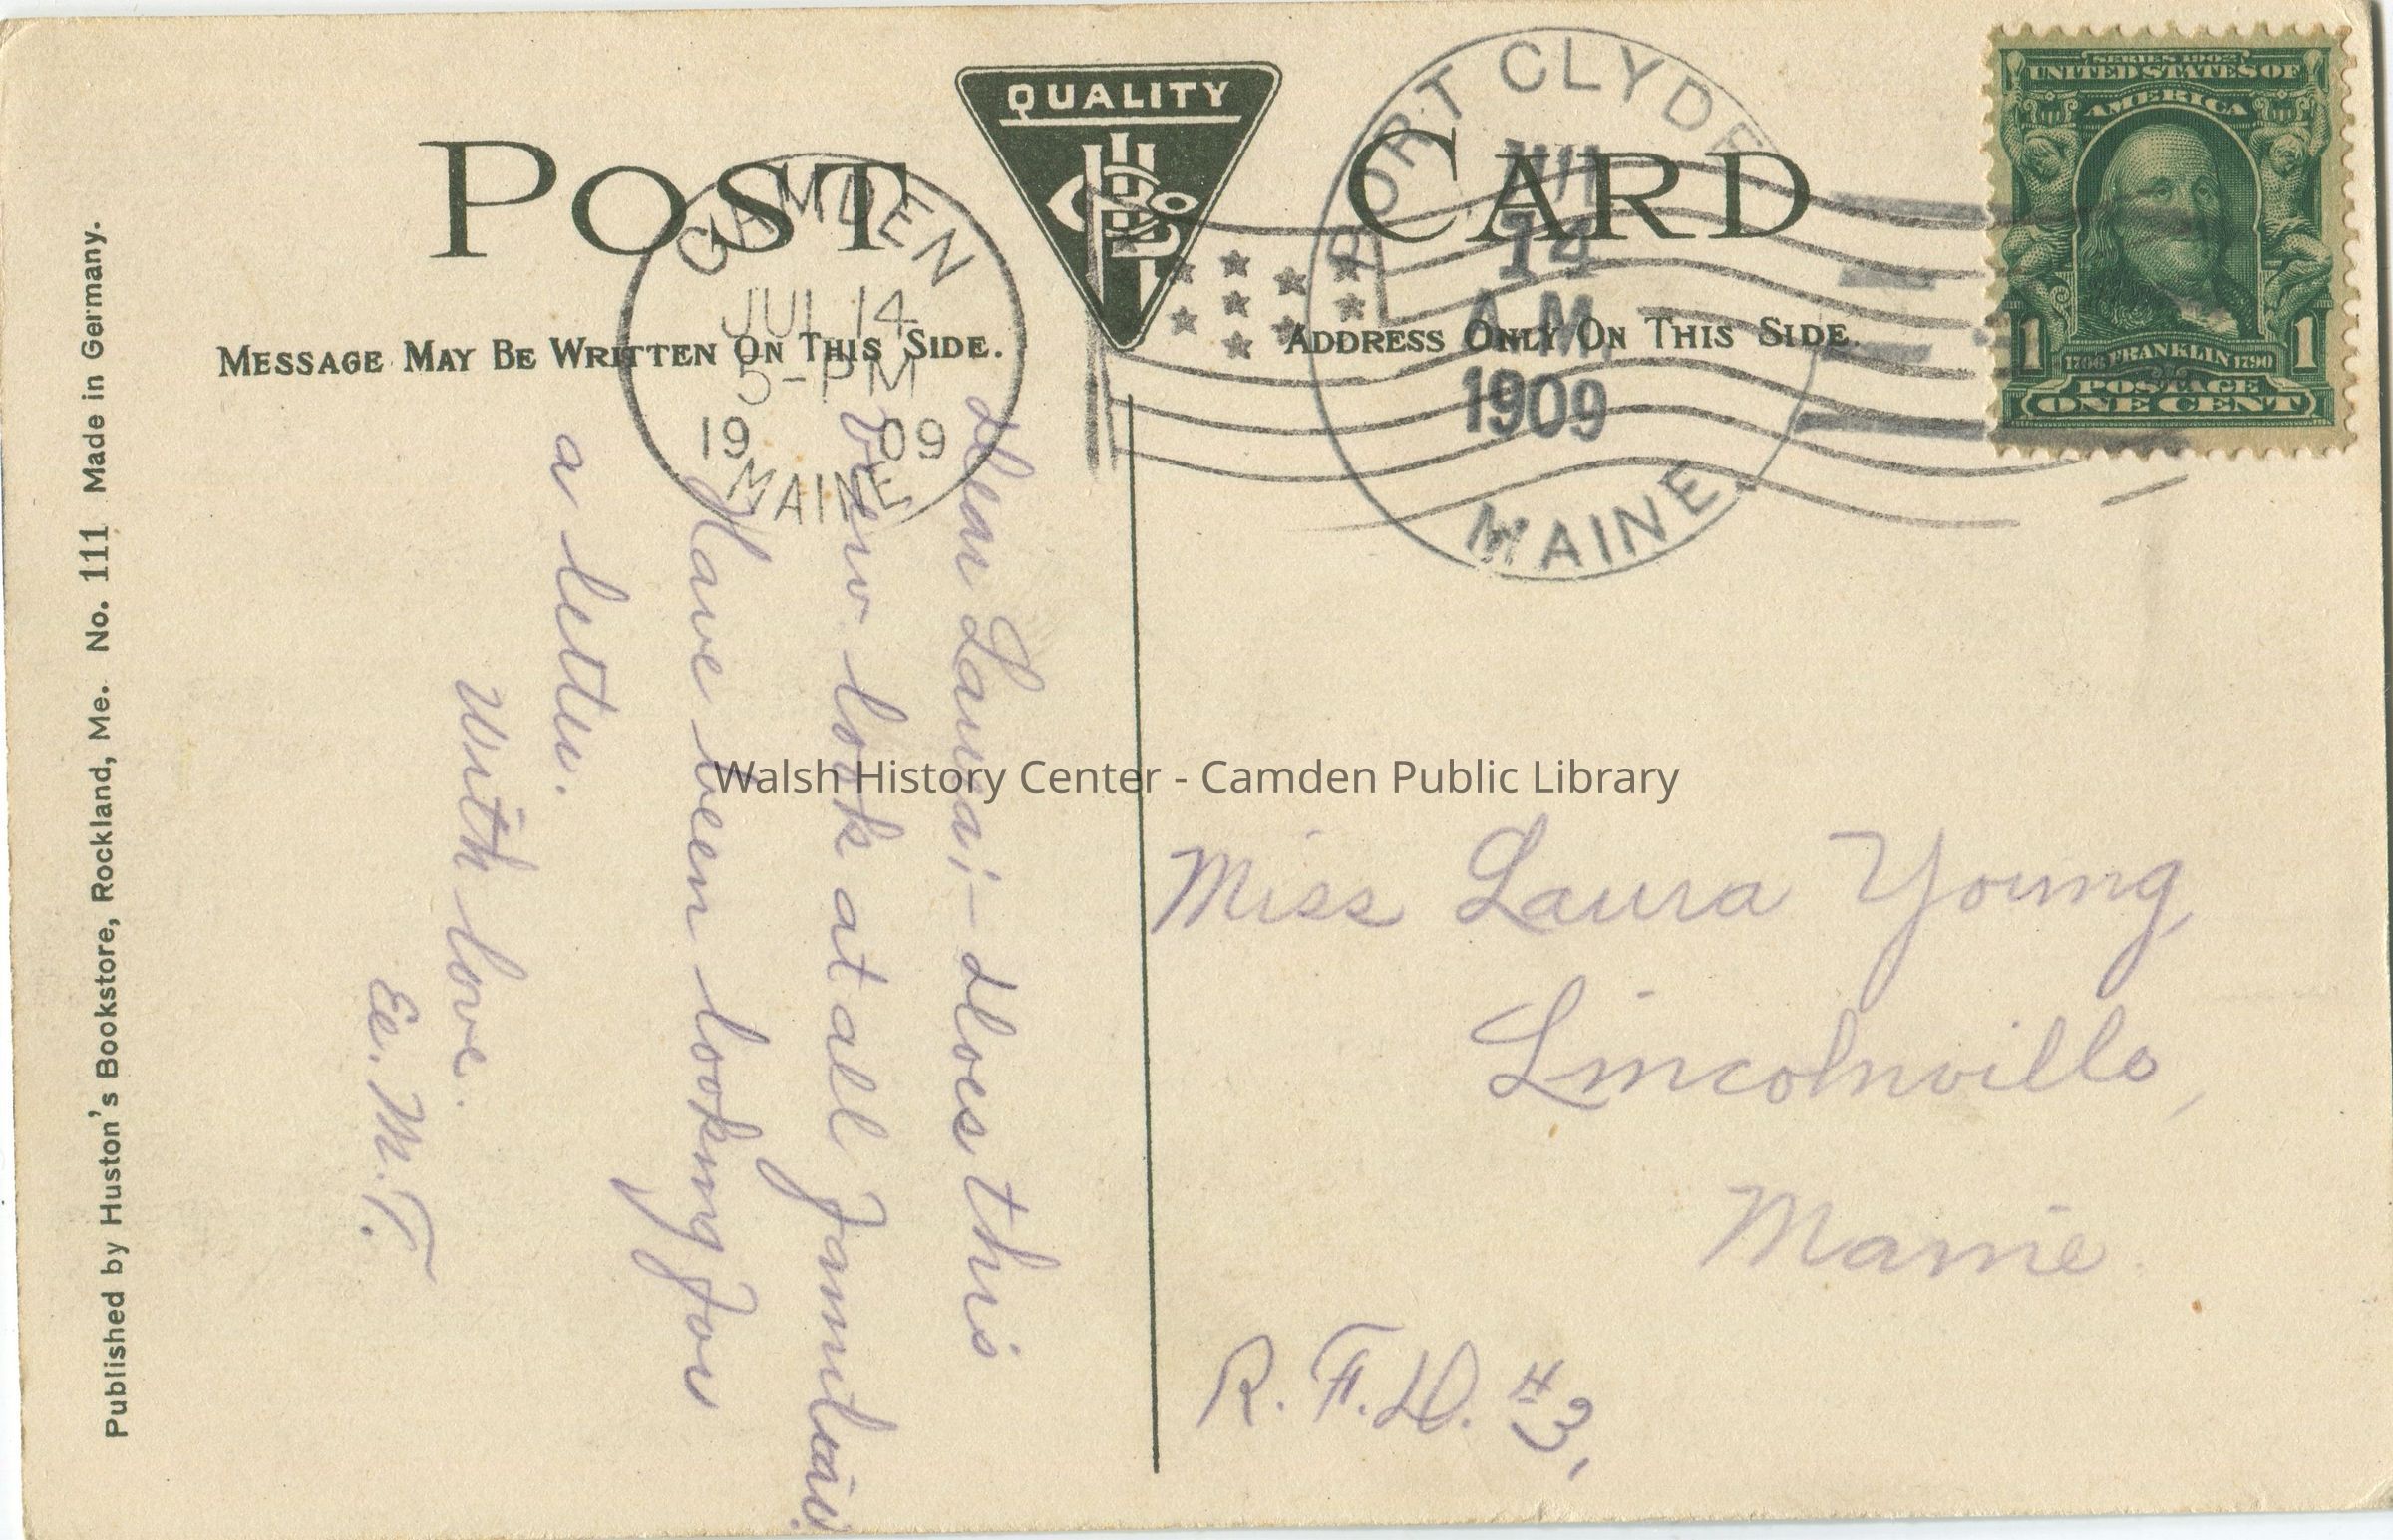 QUALITY
POST CARD
MESSAGE MAY BE WRITTEN ON THIS SIDE.
ADDRESS ONLY ON THIS SIDE.
CAMDEN
JUL 14
5-PM
19 09
MAINE
PORT CLYDE
JUL
14
A.M.
1909
MAINE
SERIES 1902
UNITED STATES OF
AMERICA
1 1
1706 FRANKLIN 1790
POSTAGE
ONE CENT
Dear Laura;- Does this
view look at all familiar
Have been looking for
a letter.
With love.
E. M. T.
Miss Laura Young,
Lincolnville,
Maine
R. F. D. #3,
Published by Huston's Bookstore, Rockland, Me. No. 111 Made in Germany.
Walsh History Center - Camden Public Library